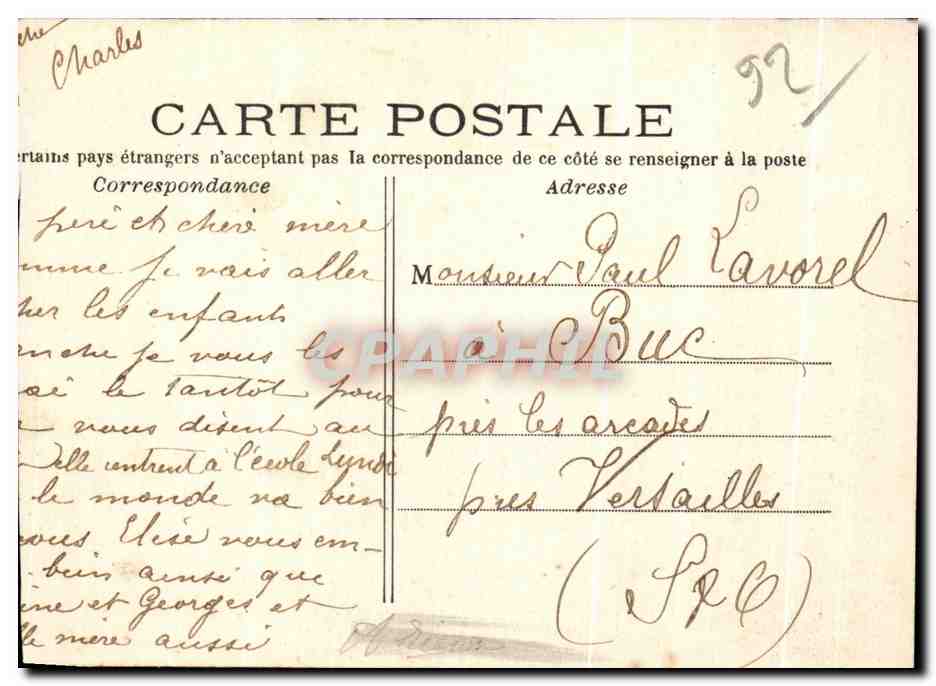 Charles
92
CARTE POSTALE
ertains pays étrangers n'acceptant pas la correspondance de ce côté se renseigner à la poste
Correspondance
père et chère mère
mme je vais aller
her les enfants
anche je vous les
le tantôt pour
vous disent au
rentrent à l'école Lundi
le monde va bien
vous Elise vous em-
bien ainsi que
ine et Georges et
le mère aussi
Adresse
Monsieur Paul Lavorel
à Buc
près les arcades
près Versailles
(S & O)
CPAPHIL